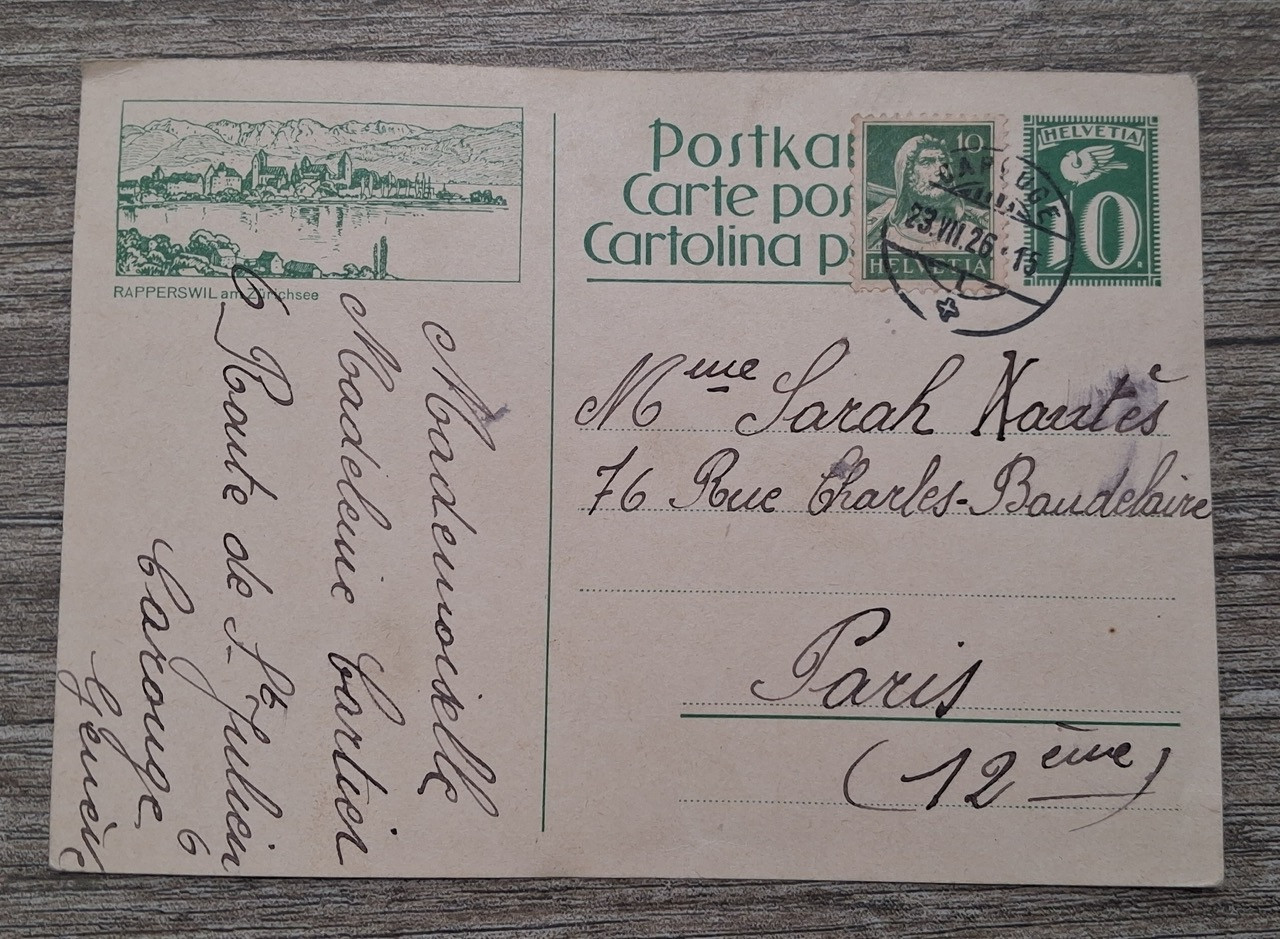 RAPPERSWIL am Zürichsee
Mademoiselle
Madeleine Cartier
6 Route de St. Julien 6
Carouge
Genève
Postkar
Carte pos
Cartolina p
10
HELVETIA
CAROUGE
23.VII.26.-15
HELVETIA
10
Mme Sarah
76 Rue Charles-Baudelaire
Paris
(12ème)